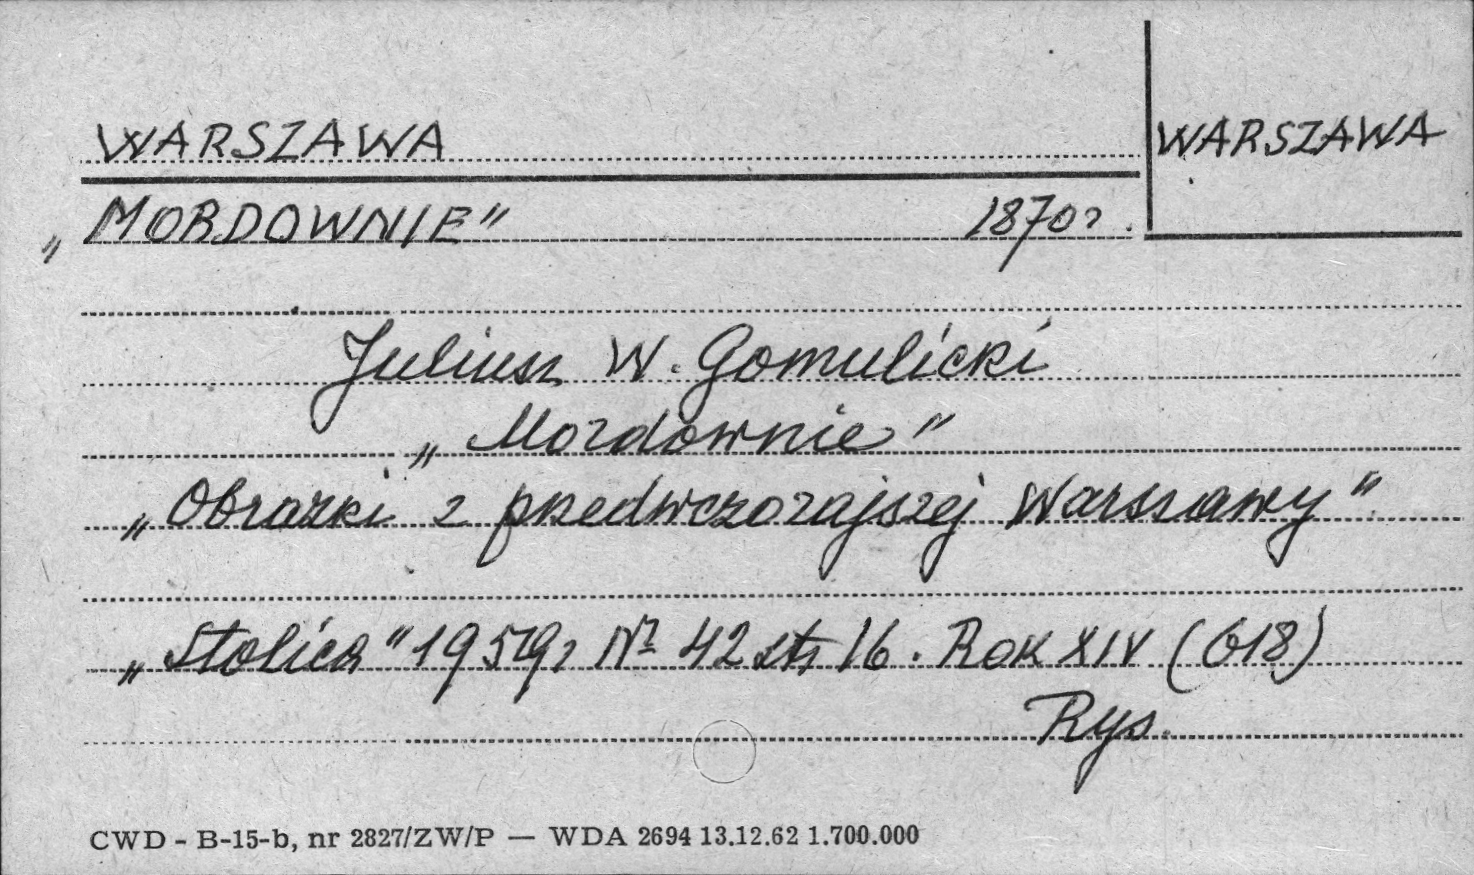 WARSZAWA
WARSZAWA
„MORDOWNIE" 1870 r.
Juliusz W. Gomulicki
„Mordownie"
„Obrazki z przedwczorajszej Warszawy"
„Stolica" 1959 r Nr 42 str 16. Rok XIV (618)
Rys.
CWD - B-15-b, nr 2827/ZW/P — WDA 2694 13.12.62 1.700.000